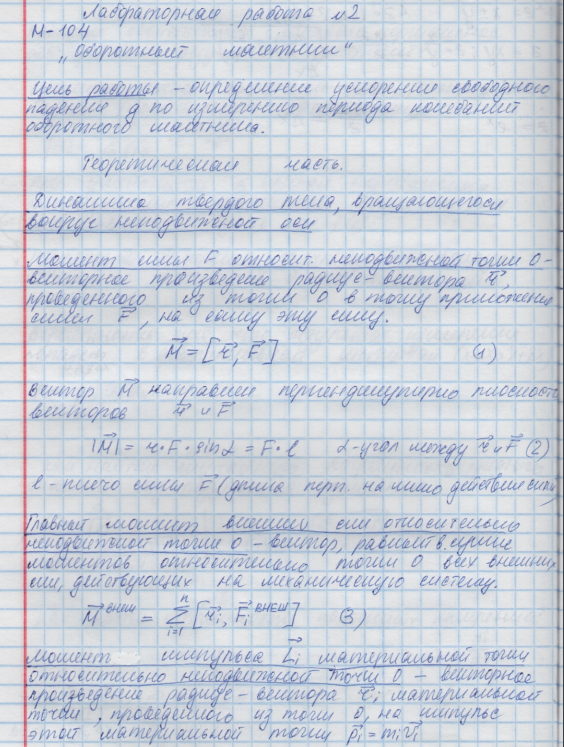 Лабораторная работа №2
М-104
„Оборотный маятник“
Цель работы – определение ускорения свободного
падения g по измерению периода колебаний
оборотного маятника.
Теоретическая часть.
Динамика твердого тела, вращающегося
вокруг неподвижной оси
Момент силы F относит. неподвижной точки О-
векторное произведение радиус-вектора r⃗,
проведенного из точки О в точку приложения
силы F⃗, на саму эту силу.
M⃗ = [r⃗, F⃗] (1)
Вектор M⃗ направлен перпендикулярно плоскости
векторов r⃗ и F⃗
|M⃗| = r·F·sinα = F·l α-угол между r⃗ и F⃗ (2)
l – плечо силы F⃗ (длина перп. на линию действия силы)
Главный момент внешних сил относительно
неподвижной точки О – вектор, равный в. сумме
моментов относительно точки О всех внешних
сил, действующих на механическую систему.
M⃗ внеш = Σ i=1 n [r⃗i, F⃗i внеш] (3)
Момент импульса L⃗i материальной точки
относительно неподвижной точки О – векторное
произведение радиус-вектора r⃗i материальной
точки, проведенного из точки О, на импульс
этой материальной точки p⃗i = miv⃗i